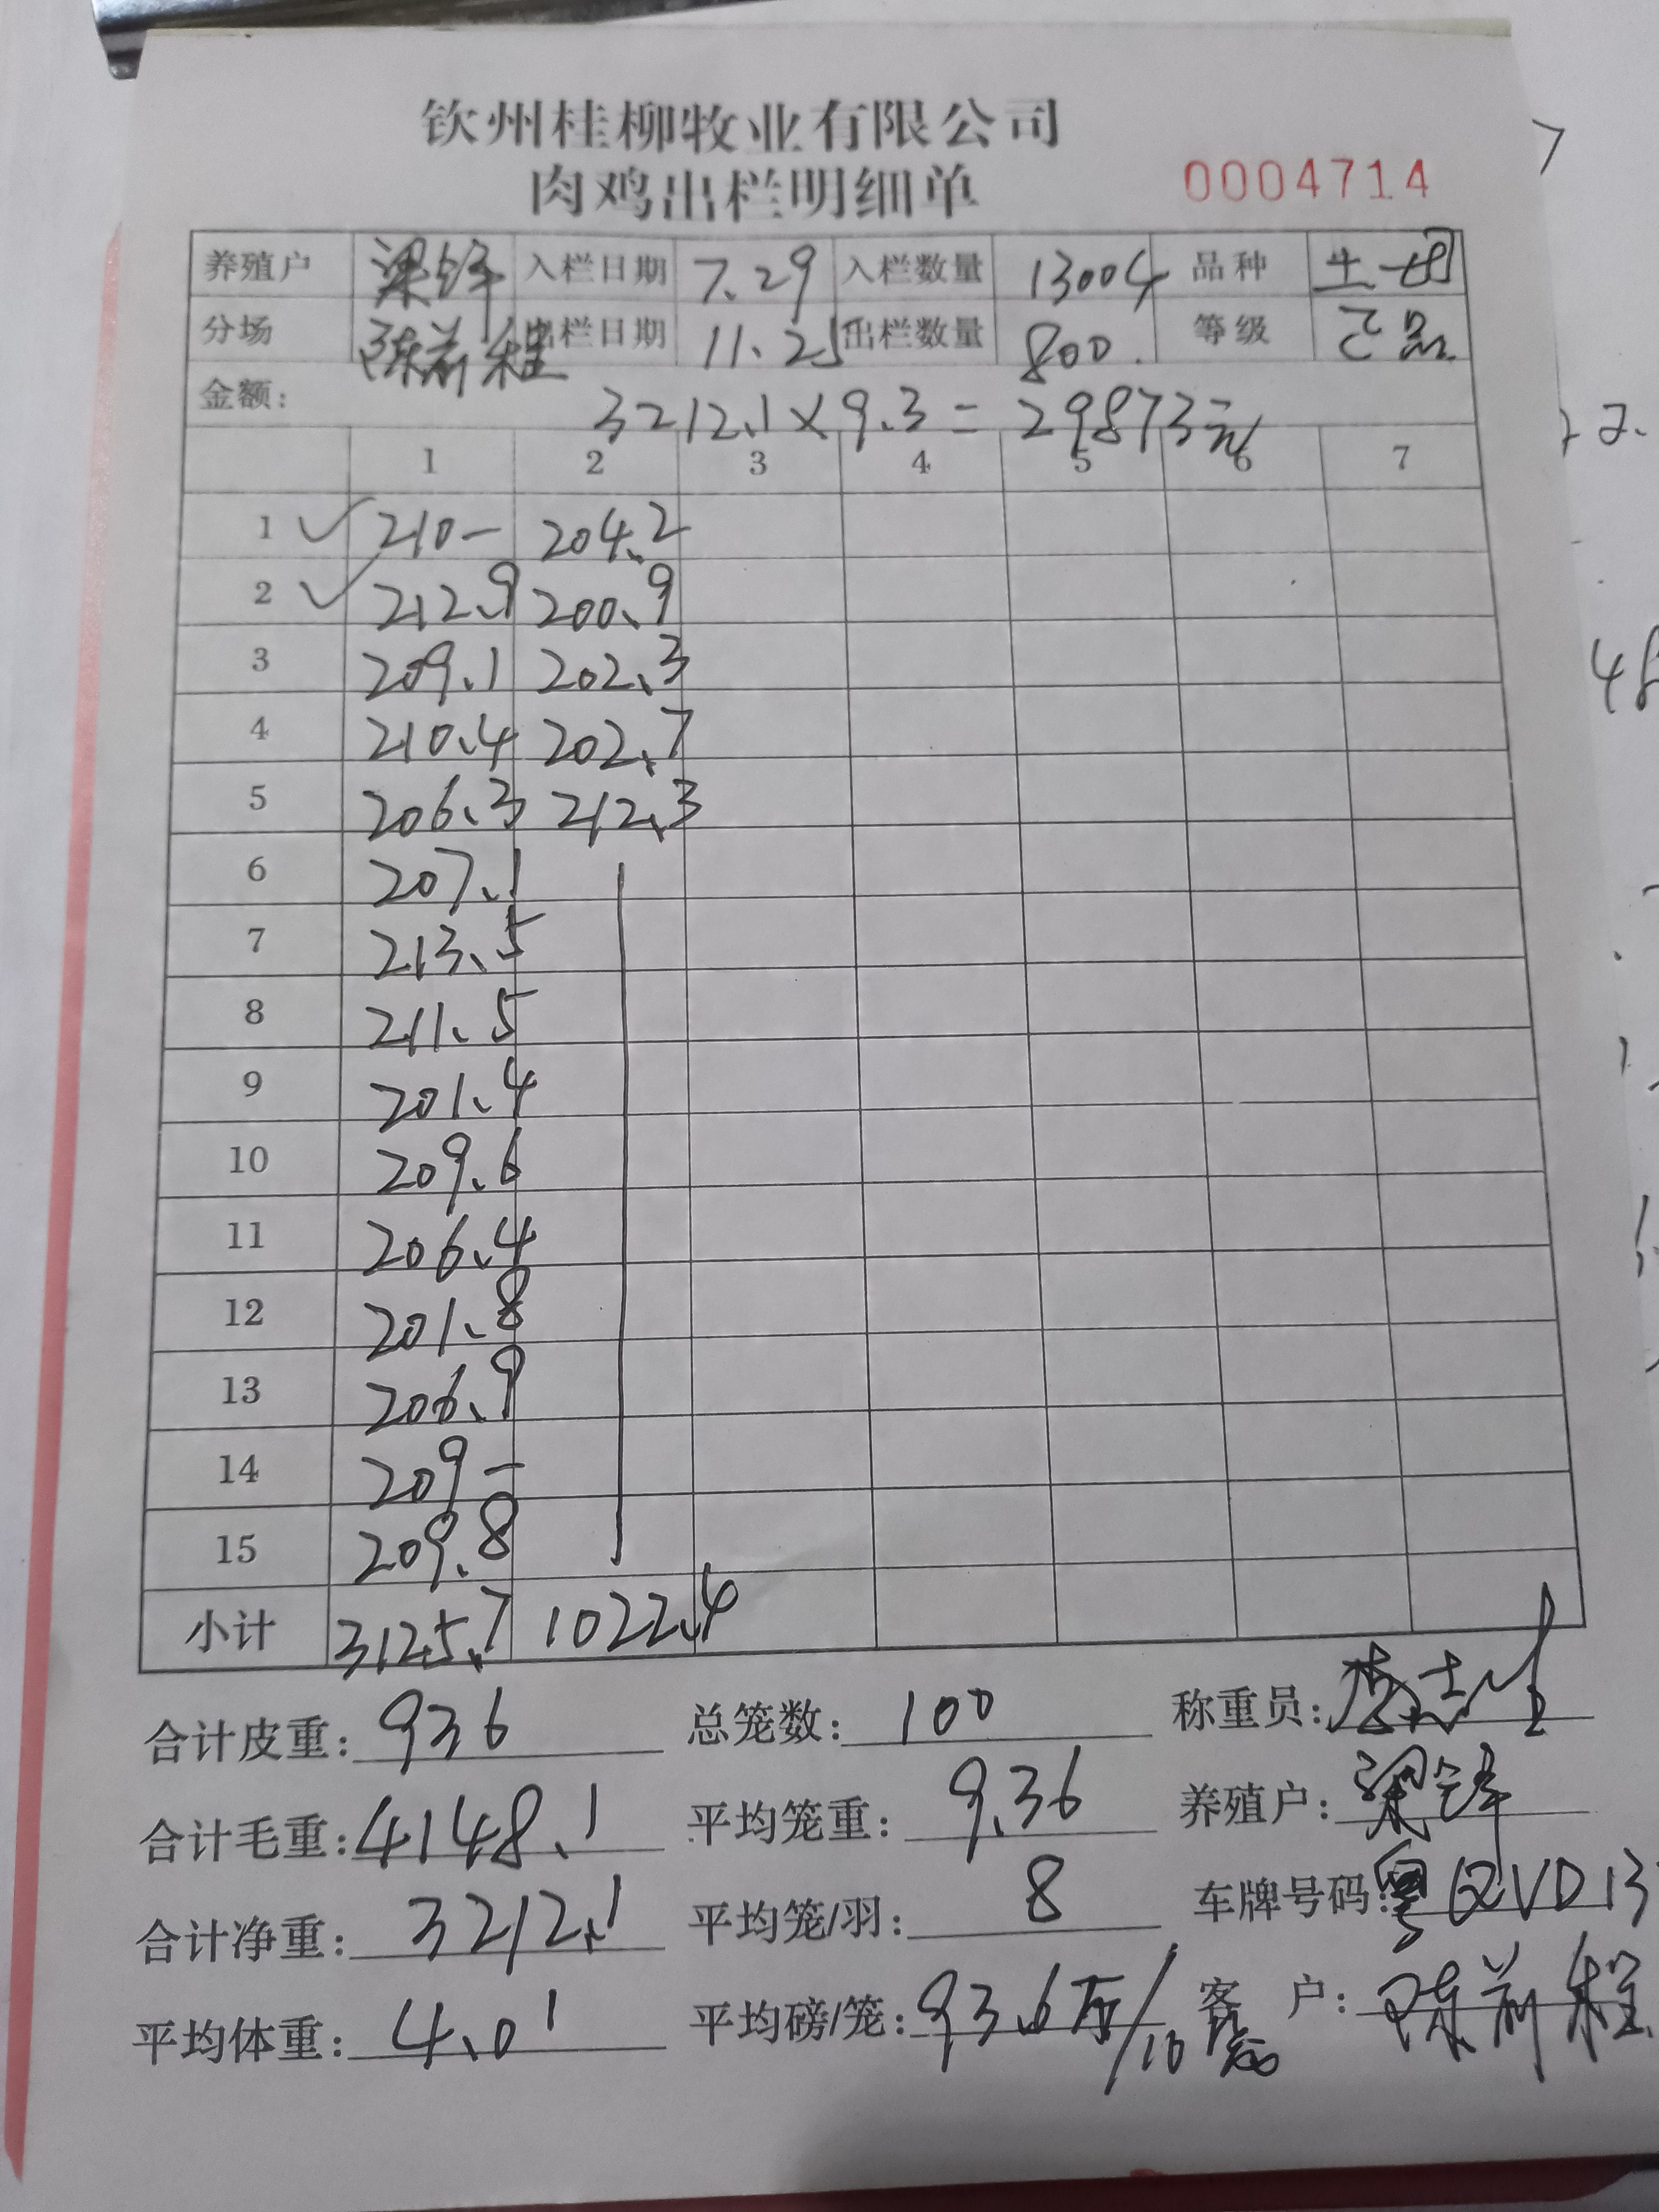 钦州桂柳牧业有限公司
肉鸡出栏明细单 0004714
养殖户 梁锋 入栏日期 7.29 入栏数量 13004 品种 土
分场 陈前程 出栏日期 11.25 出栏数量 800. 等级 正品
金额: 3212.1×9.3=29873元
1 2 3 4 5 6 7
1 210— 204.2
2 212.9 200.9
3 209.1 202.3
4 210.4 202.7
5 206.3 212.3
6 207.1
7 213.5
8 211.5
9 201.4
10 209.6
11 206.4
12 201.8
13 206.9
14 209—
15 209.8
小计 3125.7 1022.4
合计皮重: 936 总笼数: 100 称重员:
合计毛重: 4148.1 平均笼重: 9.36 养殖户: 梁锋
合计净重: 3212.1 平均笼/羽: 8 车牌号码: 粤QVD13
平均体重: 4.01 平均磅/笼: 93.6斤/10 客户: 陈前程